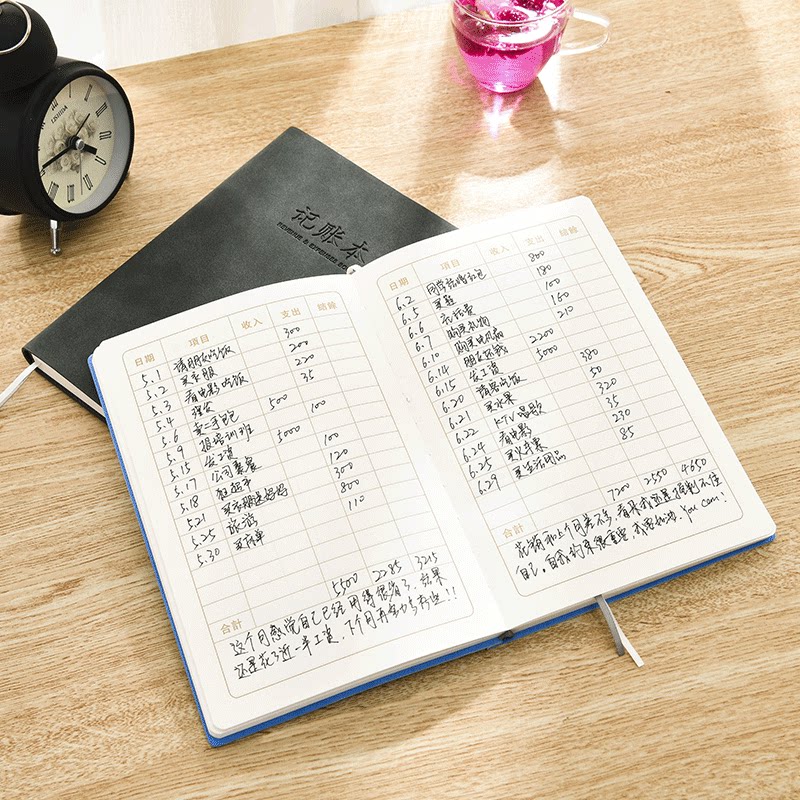 记账本
REVENUE & EXPENSES BOOK
日期 項目 收入 支出 結餘
5.1 請朋友吃饭 300
5.2 买衣服 200
5.3 看电影吃饭 220
5.4 理发 35
5.6 卖二手包 500
5.9 报培训班 100
5.15 发工资 5000
5.17 公司聚餐 100
5.18 逛超市 120
5.21 买衣服送妈妈 300
5.25 旅游 800
5.30 买床单 110
合計 5500 2285 3215
这个月感觉自己已经用得很省了，结果
还是花了近一半工资，下个月再努力多存些!!
日期 項目 收入 支出 結餘
6.2 同学结婚红包 800
6.5 买鞋 180
6.6 充话费 100
6.7 购买礼物 160
6.10 210
6.14 朋友还我 2200
6.15 发工资 5000
6.20 请客吃饭 380
6.21 买水果 50
6.22 KTV唱歌 320
6.24 看电影 35
6.25 买火车票 230
6.29 买生活用品 85
合計 7200 2550 4650
花销和上个月差不多，看来我还是控制不住
自己，自我约束很重要，我要加油，You can!